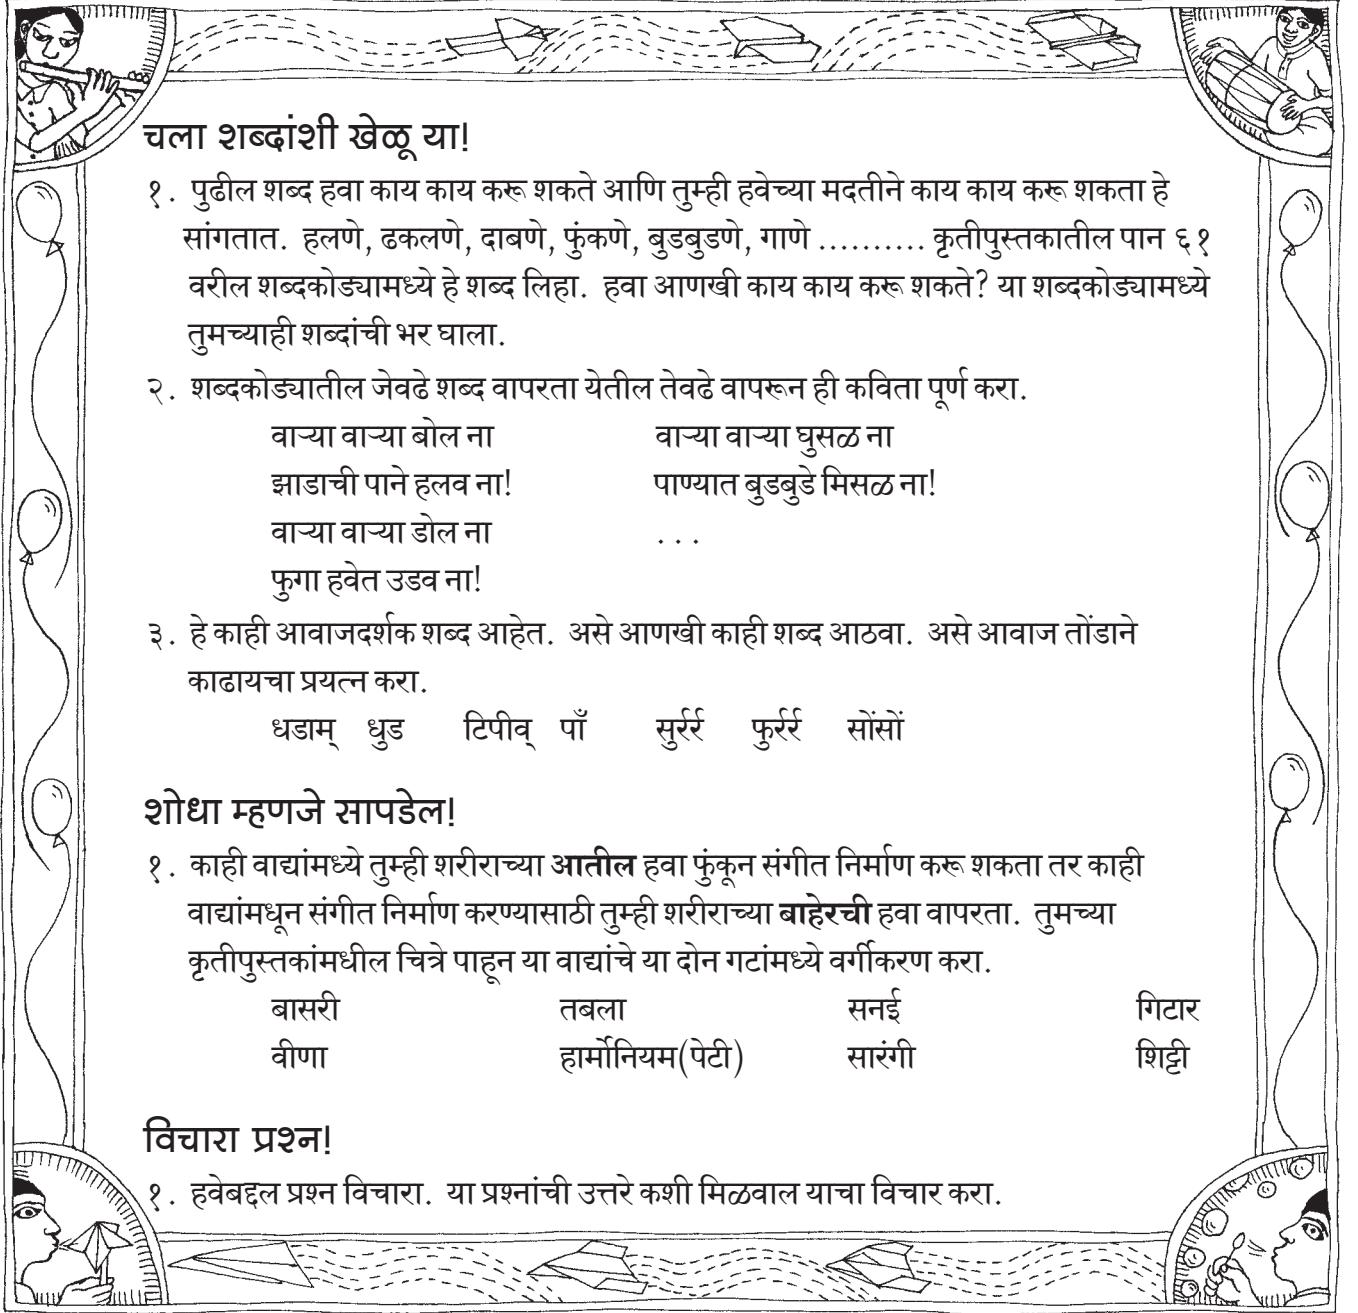 चला शब्दांशी खेळू या!
१. पुढील शब्द हवा काय काय करू शकते आणि तुम्ही हवेच्या मदतीने काय काय करू शकता हे
सांगतात. हलणे, ढकलणे, दाबणे, फुंकणे, बुडबुडणे, गाणे .......... कृतीपुस्तकातील पान ६१
वरील शब्दकोड्यामध्ये हे शब्द लिहा. हवा आणखी काय काय करू शकते? या शब्दकोड्यामध्ये
तुमच्याही शब्दांची भर घाला.
२. शब्दकोड्यातील जेवढे शब्द वापरता येतील तेवढे वापरून ही कविता पूर्ण करा.
वाऱ्या वाऱ्या बोल ना वाऱ्या वाऱ्या घुसळ ना
झाडाची पाने हलव ना! पाण्यात बुडबुडे मिसळ ना!
वाऱ्या वाऱ्या डोल ना ...
फुगा हवेत उडव ना!
३. हे काही आवाजदर्शक शब्द आहेत. असे आणखी काही शब्द आठवा. असे आवाज तोंडाने
काढायचा प्रयत्न करा.
धडाम् धुड टिपीव् पाँ सुर्रर्र फुर्रर्र सोंसों
शोधा म्हणजे सापडेल!
१. काही वाद्यांमध्ये तुम्ही शरीराच्या आतील हवा फुंकून संगीत निर्माण करू शकता तर काही
वाद्यांमधून संगीत निर्माण करण्यासाठी तुम्ही शरीराच्या बाहेरची हवा वापरता. तुमच्या
कृतीपुस्तकांमधील चित्रे पाहून या वाद्यांचे या दोन गटांमध्ये वर्गीकरण करा.
बासरी तबला सनई गिटार
वीणा हार्मोनियम(पेटी) सारंगी शिट्टी
विचारा प्रश्न!
१. हवेबद्दल प्रश्न विचारा. या प्रश्नांची उत्तरे कशी मिळवाल याचा विचार करा.